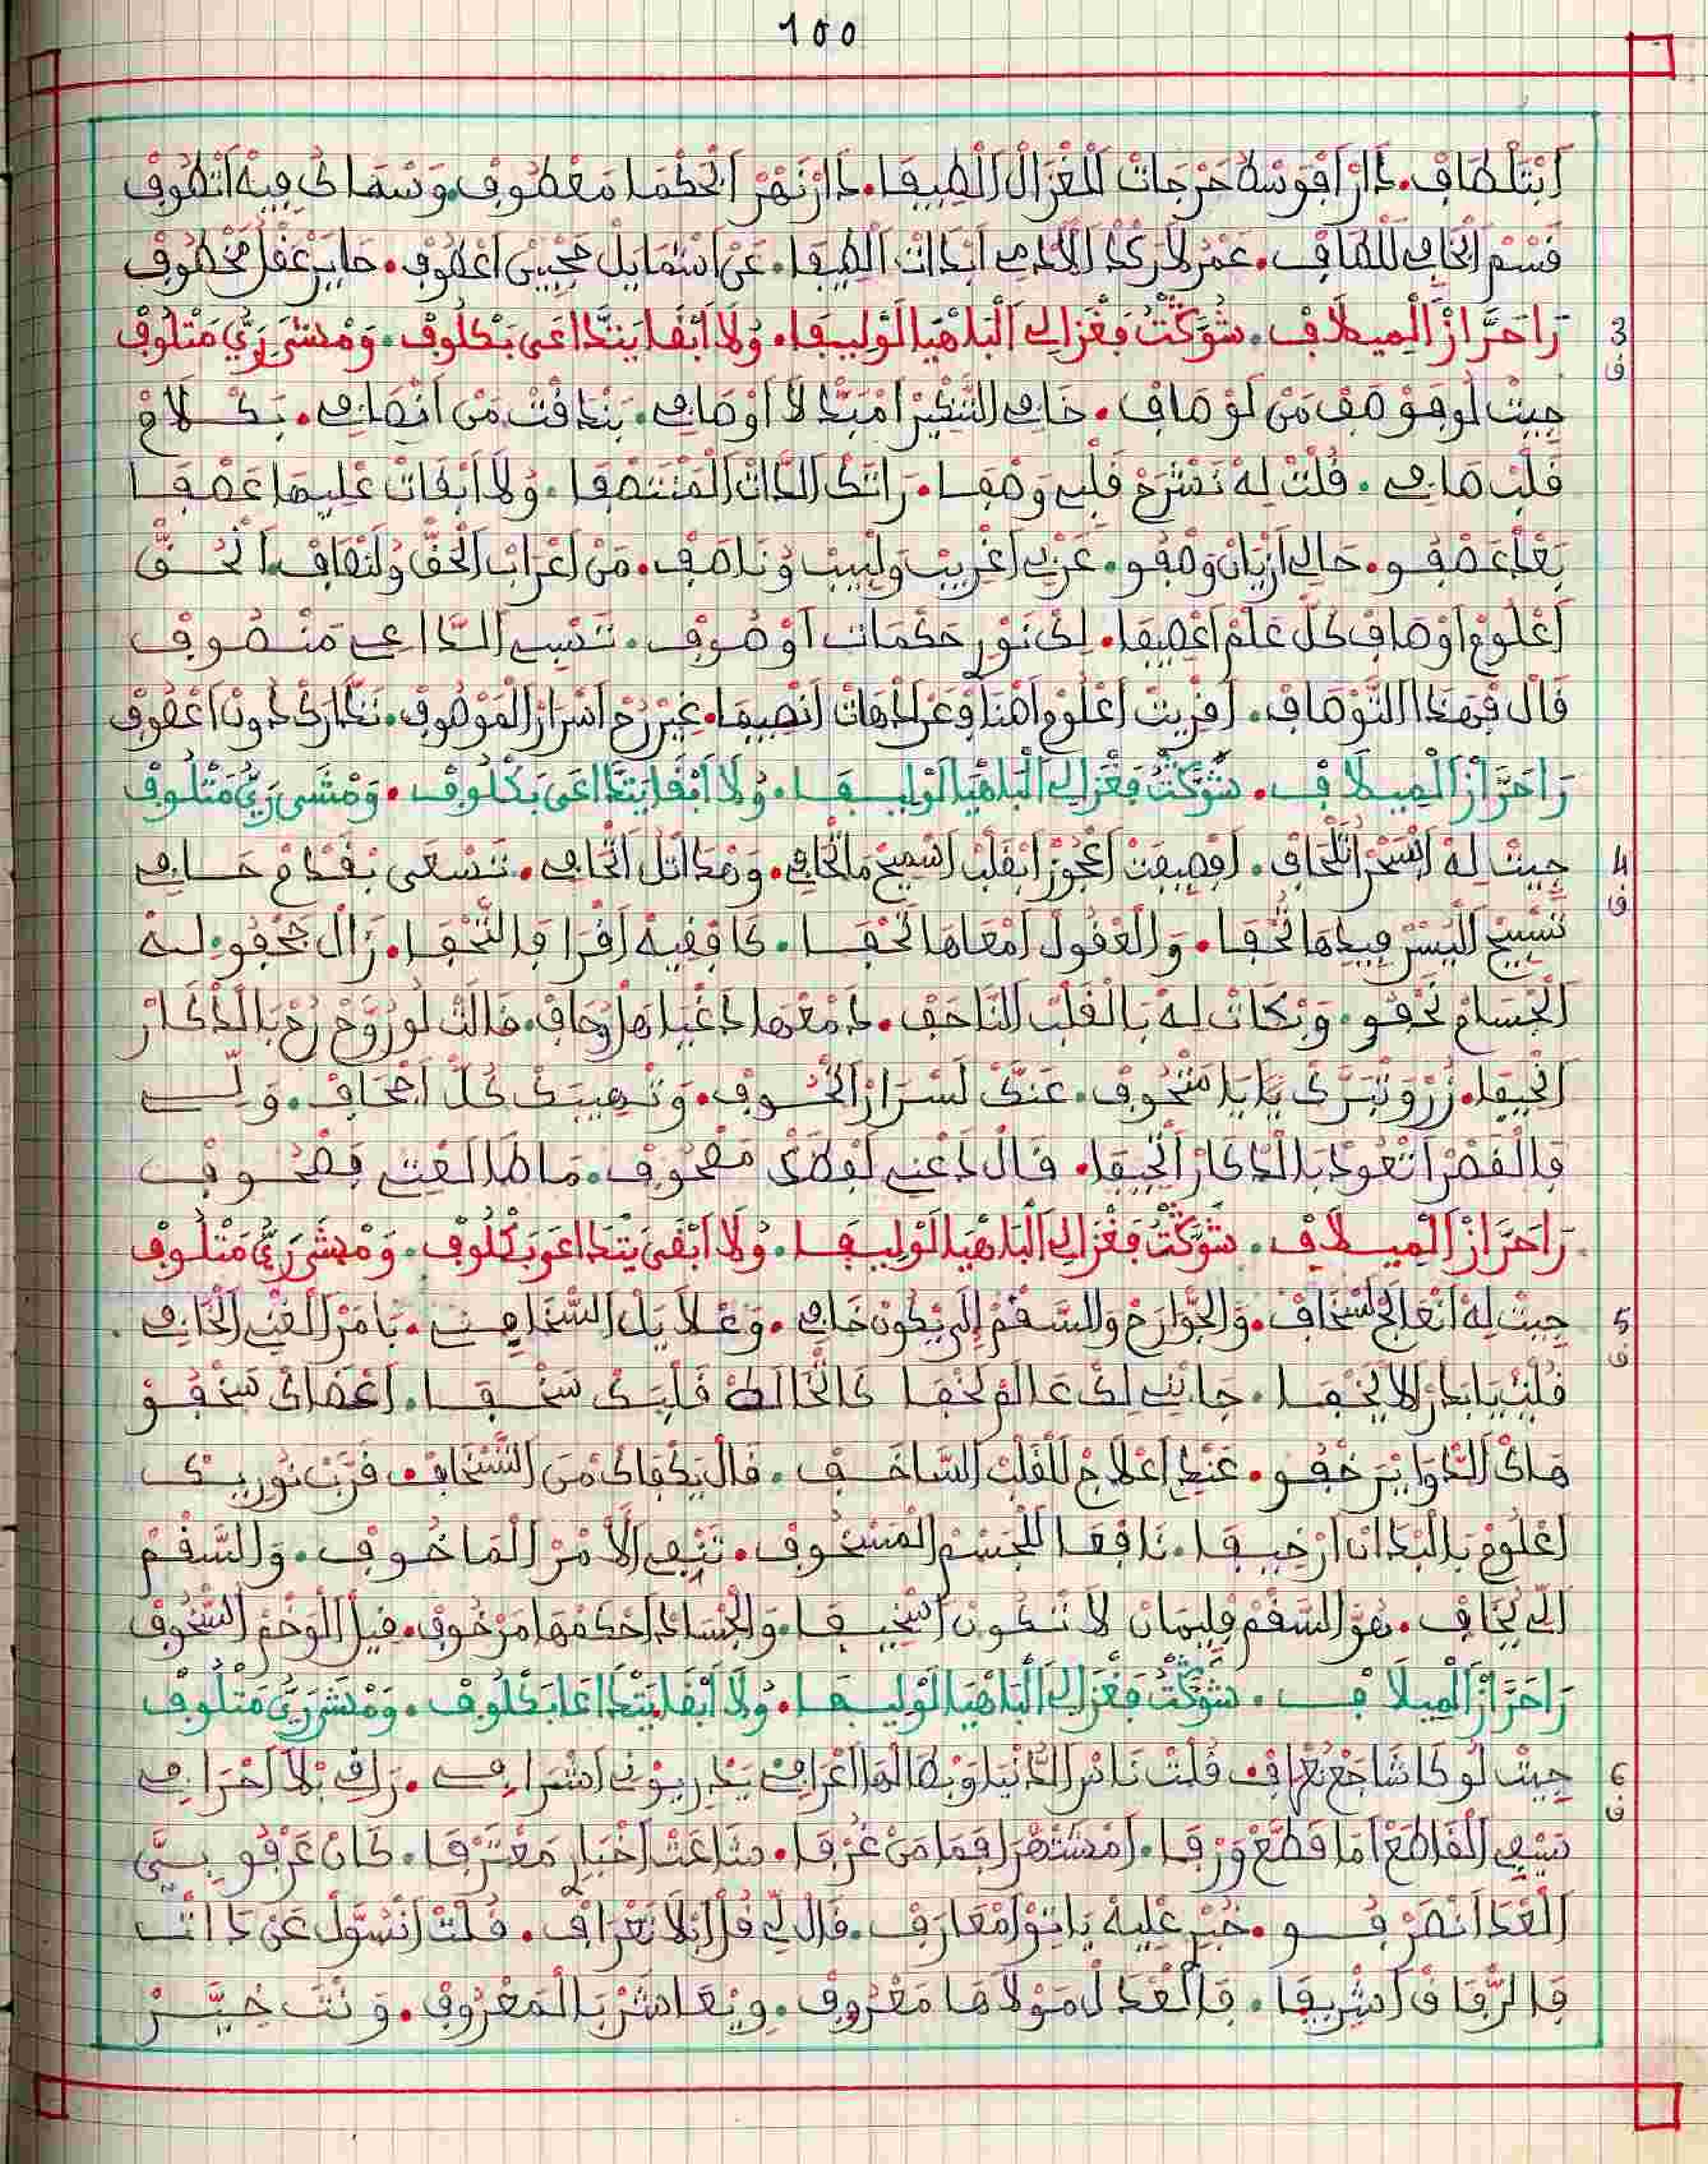 100
أَبْتَلْطَافْ. دَارْ اَفْوَسْطْ حَرْجَاتْ لَلْغْزَالْ اَلْطِيفَا. دَارْ نَهْرْ اَلْحُكْمَا مَعْطُوفْ. وَسْمَاكْ فِيهْ اَنْطُوفْ
قَسْمْ اَلْخَافِي لَلْطَافْ. عَمْرْ لَارْكْدْ اَلْأَدَمِي اَبْدَاتْ اَلْطِيفَا. عَنْ اَشْمَايْلْ مَحْبِيبِي اَعْطُوفْ. حَايَرْ عَقْلْ مَخْطُوفْ
3
ف
رَا حَرَّازْ اَلْمِيلَافْ. شَوَّكْتْ فَغْزَالِي اَلْبَاهْيَا لَوْلِيفَا. وُلَا اَبْقَا يَنْدَاعَى بَكْلُوفْ. وَمْشَى رَيُّ مَتْلُوفْ
جِيتْ لُو فَوْصَفْ مَنْ لَوْصَافْ. خَافِي التَّنْكِيرْ اَمْبَدَّلْ اَوْصَافِي. بَنْدَا قُتْ مَنْ اَنْصَافِي. بَكْلَامْ
قَلْبْ صَافِي. قُلْتْ لِهْ نَشْرَحْ قَلْبِي وَصْفَا. رَاتَكْ الدَّاتْ اَلْمَنْتَصْفَا. وُلَا اَبْقَاتْ عْلِيهَا عَصْفَا
بَعْدْ عَصْفُو. حَالِي اَزْيَانْ وَصْفُو. عَرْبِي اَغْرِيبْ وَلْبِيبْ وُنَاصَفْ. مَنْ اَعْرَابْ اَلْحَقّْ وُلَنْصَافْ. اَنْحُقّْ
اَعْلُومْ اَوْصَافْ كُلّْ عَلْمْ اَعْصِيفَا. لِكْ نُورْ حَكْمَاتْ اَوْصُوفْ. تَنْسِي الدَّاعِي مَنْصُوفْ
قَالْ فْهَدَا التَّوْصَافْ. اَقْرِيتْ اَعْلُومْ اَهْنَا وَعْرَ اَدْهَاتْ اَنْصِيفَا. غِيرْ رُحْ اَسْرَارْ اَلْمَوْصُوفْ. نَدَّارَكْ دُونْ اَعْصُوفْ
رَا حَرَّازْ اَلْمِيلَافْ. شَوَّكْتْ فَغْزَالِي اَلْبَاهْيَا لَوْلِيفَا. وُلَا اَبْقَا يَنْدَاعَى بَكْلُوفْ. وَمْشَى رَيُّ مَتْلُوفْ
4
ف
جِيتْ لِهْ اَبْسَحْرْ اَلْحَافْ. اَوْصِيفْتْ اَعْجُوزْ اَبْقَلْبْ اَسْمِيحْ مَالْحَافِي. وَهْدَاتْلْ اَلْحَافِي. تَسْعَى بَقْدَامْ حَافِي
تَسْبِيحْ اَلْيُسْرْ فِيدْهَا تُحْفَا. وَالْعْقُولْ اَمْعَاهَا تَحْفَا. كَا فْفِيهْ اَقْرَا فَالتُّحْفَا. زَالْ حَجْفُو. لِهْ
اَلْجْسَامْ نَحْفُو. وَبْكَاتْ لِهْ بَالْقَلْبْ النَّاحَفْ. دَمْعْهَا دَغْيَا هَلْ وُحَافْ. قَالَتْ لُو رُوحْ رُحْ بَالدْكَارْ
اَنْحِيفَا. زُرْ وَتْبَرَّكْ يَا بَا مَنْحُوفْ. عَنْدَكْ لَسْرَارْ اَلْحُوفْ. وَنْهِيبَكْ كُلّْ اَجْحَافْ. وَلِي
فَالْقْصَرْ اَتْعُودْ بَالدْكَارْ اَلْحِيفَا. قَالْ دَعْنِي لَفْطَكْ مَفْحُوفْ. مَا طَالْعَتْ فَصْحُوفْ
رَا حَرَّازْ اَلْمِيلَافْ. شَوَّكْتْ فَغْزَالِي اَلْبَاهْيَا لَوْلِيفَا. وُلَا اَبْقَى يَنْدَاعَى بَكْلُوفْ. وَمْشَى رَيُّ مَتْلُوفْ
5
ف
جِيتْ لِهْ اَنْعَالَجْ لَسْخَافْ. وَالْجْوَارَحْ وَالسُّقْمْ اِلِي يْكُونْ خَافِي. وَعْلَايَلْ السَّخَافِي. بَامْرْ اَلْغْنِي اَلْخَافِي.
قُلْتْ يَا بَدْرْ لَا يَخْفَا. جَانِي لِكْ عَالَمْ لَخْفَا كَا تْخَالَطْ قَلْبَكْ سَخْفَا. اَعْضَاكْ سَخْفُو
هَاكْ الدْوَا يَرْخْفُو. عَنْدِي اَعْلَاجْ لَلْقَلْبْ السَّاخَفْ. قَالْ يَكْفَاكْ مَنْ التَّسْخَافْ. قَرَّبْ نُورِيكْ
اَعْلُومْ بَالْبْدَانْ اَرْخِيفَا. نَافْعَا لَلْجَسْمْ اَلْمَسْخُوفْ. تَنْفِي اَلْأَمْرْ اَلْمَاخُوفْ. وَالسُّقْمْ
اَلِّي يُخَافْ. هُوَّ السُّقْمْ فْلِيمَانْ لَا تْكُونْ اَسْخِيفَا. وَالْجْسَادْ اَحْكَمْهَا مَرْخُوفْ. فِيلْ اَلْوَخْمْ السّْخُوفْ
رَا حَرَّازْ اَلْمِيلَافْ. شَوَّكْتْ فَغْزَالِي اَلْبَاهْيَا لَوْلِيفَا. وُلَا اَبْقَا يَنْدَاعَا بَكْلُوفْ. وَمْشَى رَيُّ مَتْلُوفْ
6
ف
جِيتْ لُو كَا شَاجَعْ نَعْرَافْ. قُلْتْ نَاسْ الدَّنْيَا وَبْطَالْهَا اَعْرَافِي يَدْرِيوْنِي اَشْرَافِي. رَافْ بْلَا اَحْرَافِي
سِيفِي اَلْقَاطَعْ اَمَا قْطَعْ وَرْقَا. اَمْشَتْهَرْ اَفْمَا مَنْ غُرْفَا. شَاعَتْ اَخْبَارْ مَعْتَرْفَا. كَانْ عَرْفُو بِيَّ
اَلْعْدَا نَصَرْفُو. خَبَرْ عْلِيهْ يَا تِيوْ اَمْعَارَفْ. قَالْ لِي قُلْ اَبْلَا تَعْرَافْ. قُلْتْ اَنْسَوَّلْ عَنْ دَا اَنْتَ
فَالرّْفَاقْ اَشْرِيفَا. فَالْعْدَلْ مُولَاهَا مَعْرُوفْ. وِيْعَاشَرْ بَالْمَعْرُوفْ. وَنْتَ خِيَّرْ